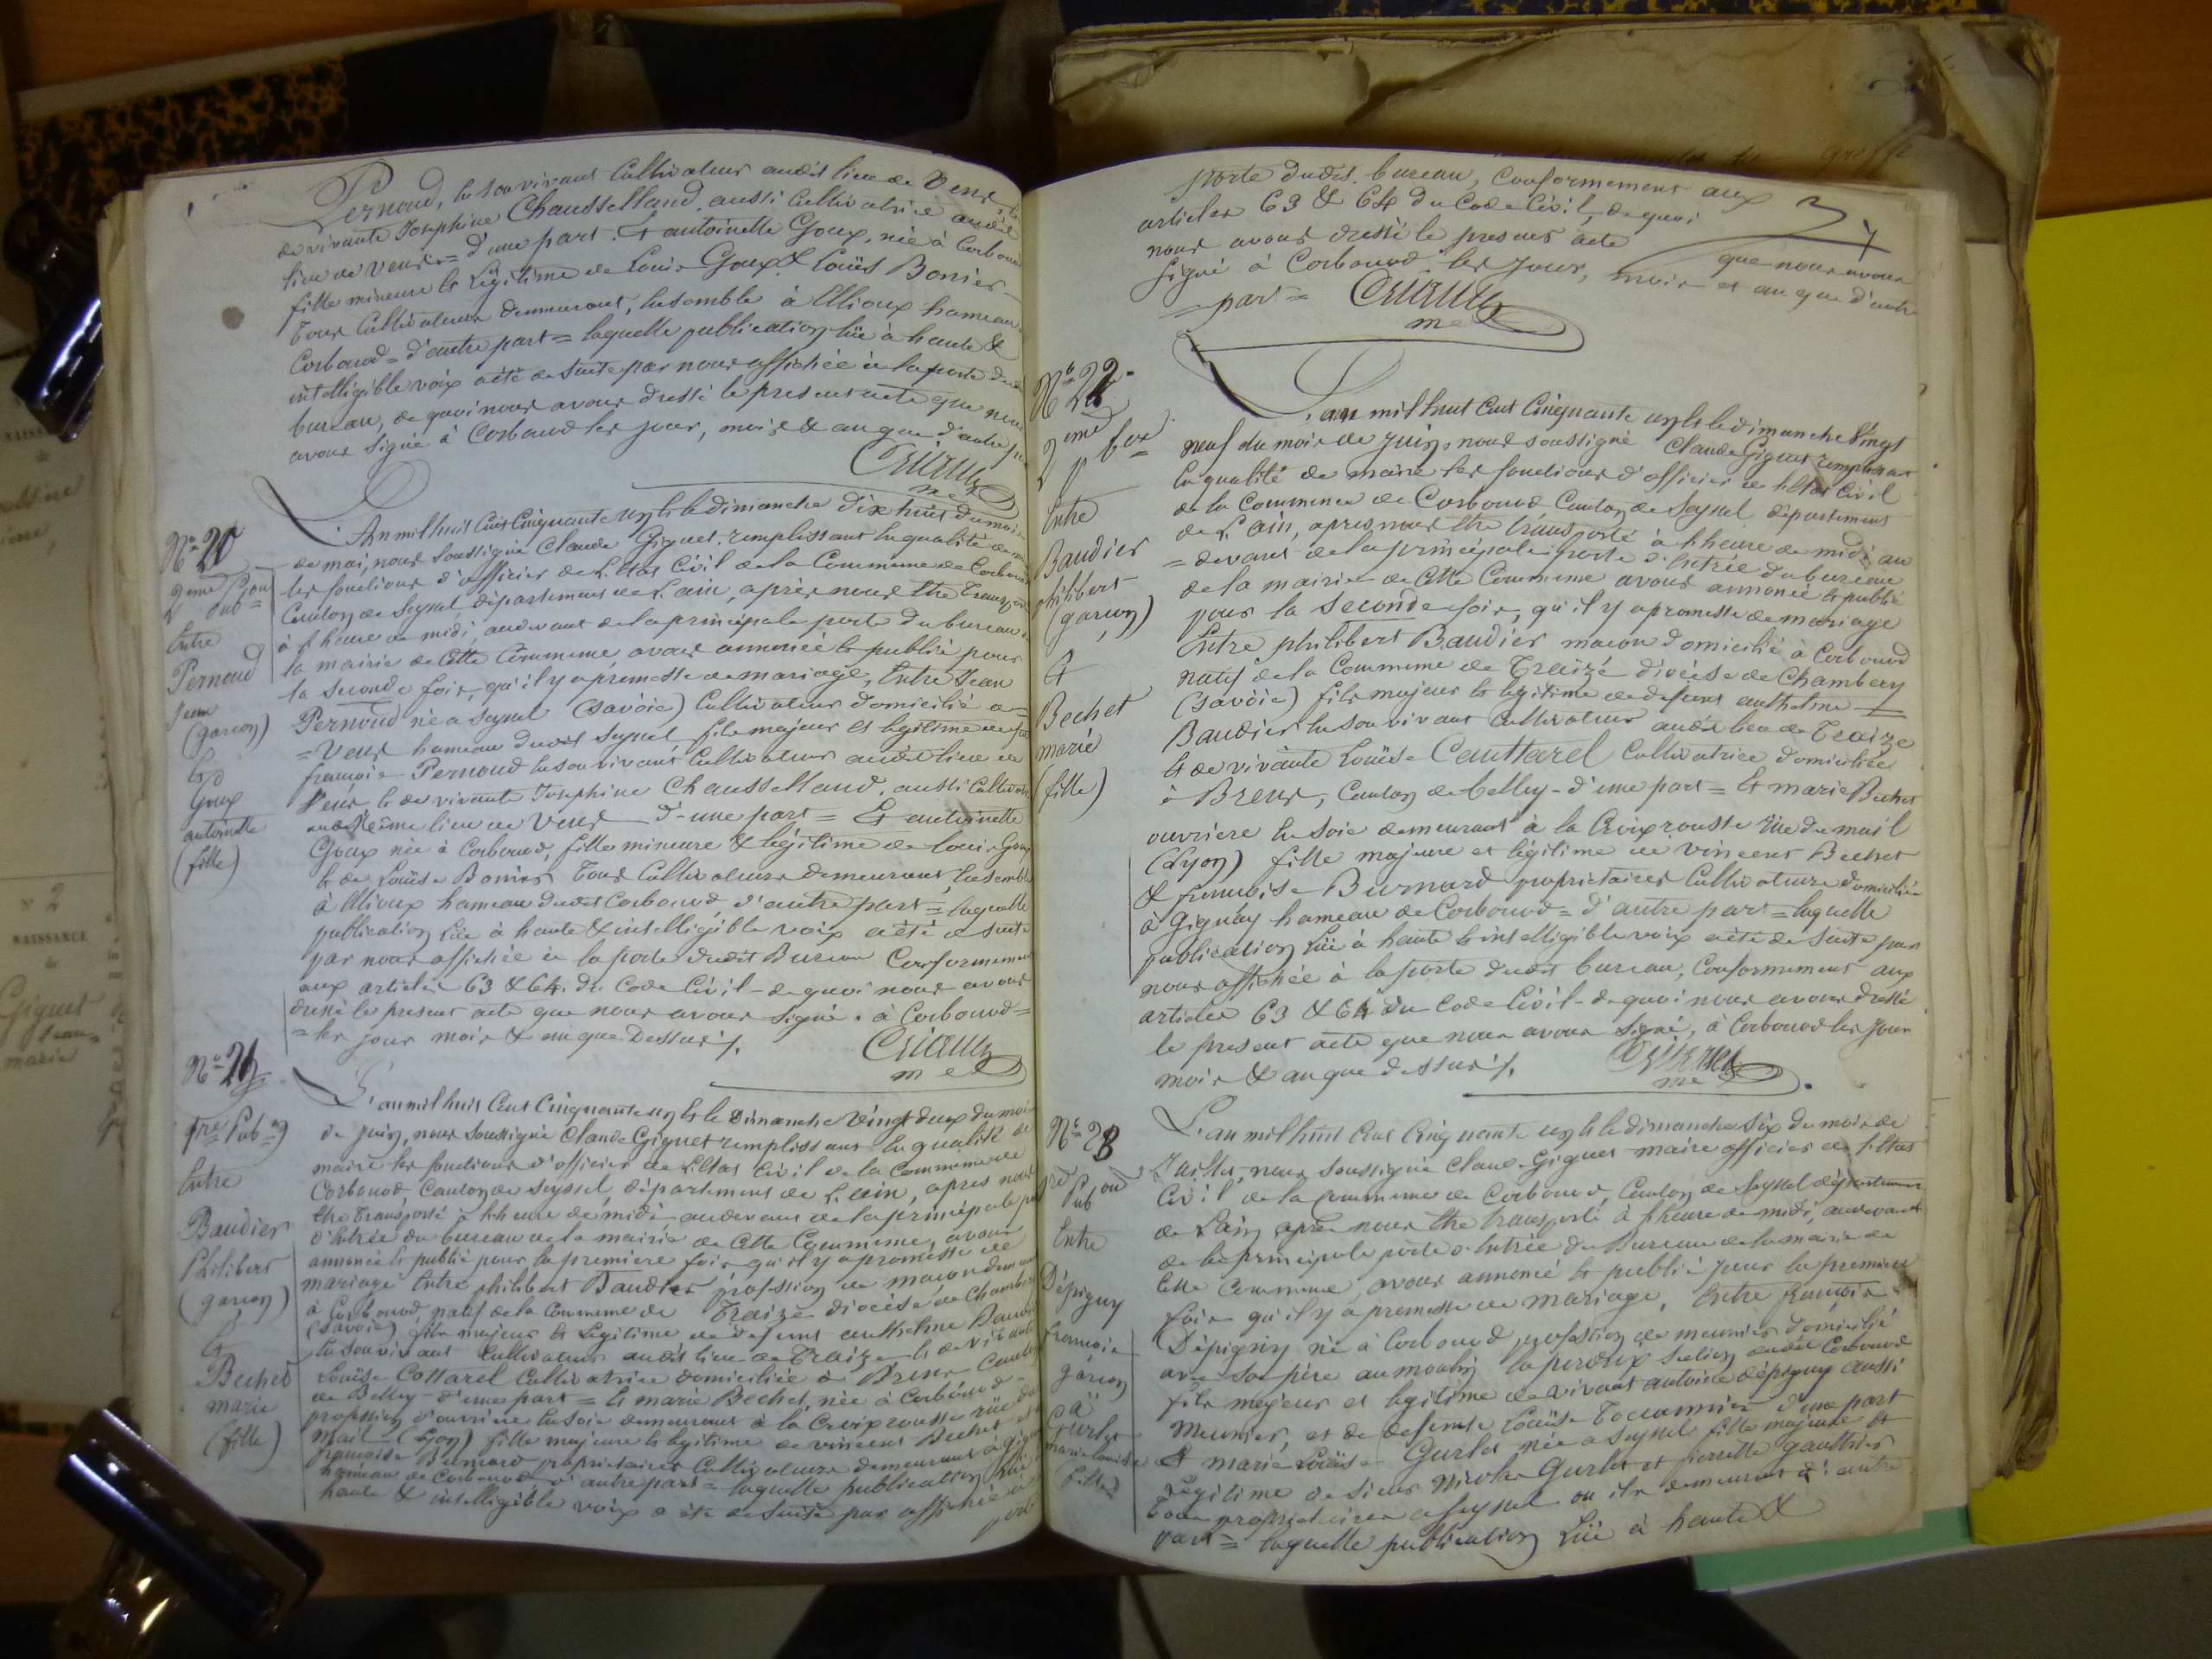 Pernoud, en son vivant Cultivateur audit lieu de Veur, et
de vivante Josephine Chausselland, aussi Cultivatrice audit
lieu de Veur = d'une part. Et antoinette Goux, née à Corbonod
fille mineure et Légitime de Louis Goux & Louïse Bonier
tous Cultivateurs demeurant, ensemble à Allioux hameau
Corbonod = d'autre part = laquelle publication lüe à haute &
intelligible voix a été de suite par nous affichée à la porte dudit
bureau, de quoi nous avons dressé le present acte que nous
avons signé à Corbonod les jour, mois & an que d'autre
N° 20
2eme
Pub
Entre
Pernoud
Jean
(garcon)
Et
Goux
antoinette
(fille)
L'An mil huit Cent Cinquante un et le dimanche dix huit du mois
de mai, nous soussigné Claude Giguet, remplissant la qualité de
les fonctions d'officier de L'Etat Civil de la Commune de Corbonod
Canton de Seyssel, département de L'ain, après nous être transporté
à l'heure de midi, audevant de la principale porte du bureau de
la mairie de Cette Commune, avons annoncé et publié pour
la seconde fois, qu'il y a promesse de mariage, Entre Jean
Pernoud né a Seyssel (Savoie) Cultivateur domicilié a
= Veur hameau dudit Seyssel fils majeur et légitime de
francois Pernoud en son vivant Cultivateur audit lieu de
Veur et de vivante Josephine Chausselland, aussi Cultivatrice
audit même lieu de Veur d'une part = Et antoinette
Goux née à Corbonod, fille mineure & légitime de Louis Goux
et de Louïse Bonier tous Cultivateurs demeurant, Ensemble
à Allioux hameau dudit Corbonod, d'autre part = laquelle
publication Lüe à haute & intelligible voix a été de suite
par nous affichée à la porte dudit Bureau Conformement
aux articles 63 & 64 du Code Civil - de quoi nous avons
dressé le present acte que nous avons signé. à Corbonod =
= les jour mois & an que Dessus ./.
N° 21
1re Pub on
Entre
Baudier
Philibert
(garcon)
Et
Bechet
marie
(fille)
L'an mil huit Cent Cinquante un et le Dimanche Vingt deux du mois
de juin, nous soussigné Claude Giguet remplissant la qualité de
maire les fonctions d'officier de L'Etat Civil de la Commune de
Corbonod Canton de Seyssel, département de L'ain, apres nous
être transporté à l'heure de midi, audevant de la principale porte
d'Entrée du bureau de la mairie de Cette Commune, avons
annoncé et publié pour la premiere fois qu'il y a promesse de
mariage Entre philibert Baudier profession de macon demeurant
à Corbonod, natif de la Commune de Traize diocèse de Chambery
(Savoie) fils majeur et Légitime de defunt anthelme Baudier
En son vivant Cultivateur audit lieu de Traize et de vivante
Louïse Cottarel Cultivatrice domiciliée à Brens Canton
de Belley - d'une part = Et marie Bechet, née à Corbonod
profession d'ouvriere En Soie demeurant à la Croix rousse rüe du
mail (Lyon) fille majeure et légitime de vincent Bechet et
francoise Burnard proprietaires Cultivateurs demeurant à Gignay
hameau de Corbonod, d'autre part = laquelle publication lüe à
haute & intelligible voix a été de suite par affichée à
porte dudit bureau, Conformement aux
articles 63 & 64 du Code Civil, de quoi
nous avons dressé le present acte que nous avons
signé à Corbonod les jour, mois et an que d'autre
= part =
N° 22
2eme
Entre
Baudier
philibert
(garcon)
Et
Bechet
marie
(fille)
L'an mil huit Cent Cinquante un et le dimanche Vingt
neuf du mois de juin, nous soussigné Claude Giguet remplissant
la qualité de maire les fonctions d'officier de L'Etat Civil
de la Commune de Corbonod Canton de Seyssel département
de L'ain, apres nous être transporté à l'heure de midi au
= devant de la principale porte d'Entrée du bureau
de la mairie de Cette Commune avons annoncé et publié
pour la seconde fois, qu'il y a promesse de mariage
Entre philibert Baudier macon domicilié à Corbonod
natif de la Commune de Traizé diocèse de Chambery
(Savoie) fils majeur et légitime de defunt anthelme
Baudier En son vivant Cultivateur audit lieu de Traize
et de vivante Louïse Cauttarel Cultivatrice domiciliée
à Brens, Canton de belley - d'une part = Et marie Bechet
ouvriere En Soie demeurant à la Croix rousse rüe du mail
(Lyon) fille majeure et légitime de vincent Bechet
& francoise Burnard proprietaires Cultivateurs domiciliés
à Gignay hameau de Corbonod = d'autre part = laquelle
publication Lüe à haute et intelligible voix a été de suite par
nous affichée à la porte dudit bureau, Conformement aux
articles 63 & 64 du Code Civil - de quoi nous avons dressé
le present acte que nous avons signé, à Corbonod les jour
mois & an que dessus ./.
N° 23
1re
Pub on
Entre
Dépigny
francois
garcon
Et
Gurlet
marie Louise
fille
L'an mil huit Cent Cinquante un et le dimanche Six du mois de
Juillet, nous soussigné Claude Giguet maire officier de L'Etat
Civil de la Commune de Corbonod, Canton de Seyssel département
de L'ain, après nous être transporté à l'heure de midi, audevant
de la principale porte d'Entrée du Bureau de la mairie de
Cette Commune, avons annoncé et publié pour la premiere
fois qu'il y a promesse de mariage, Entre francois
Dépigny né à Corbonod profession de meunier domicilié
avec son père au moulin la perdrix section dudit Corbonod
fils majeur et légitime de vivant antoine dépigny aussi
meunier, et de defunte Louïse d'une part
Et marie Louïse Gurlet née a Seyssel fille majeure et
légitime de sieur Nicolas Gurlet et pierrette gauthier
tous proprietaires a Seyssel ou ils demeurent d'autre
part = laquelle publication Lüe à haute &